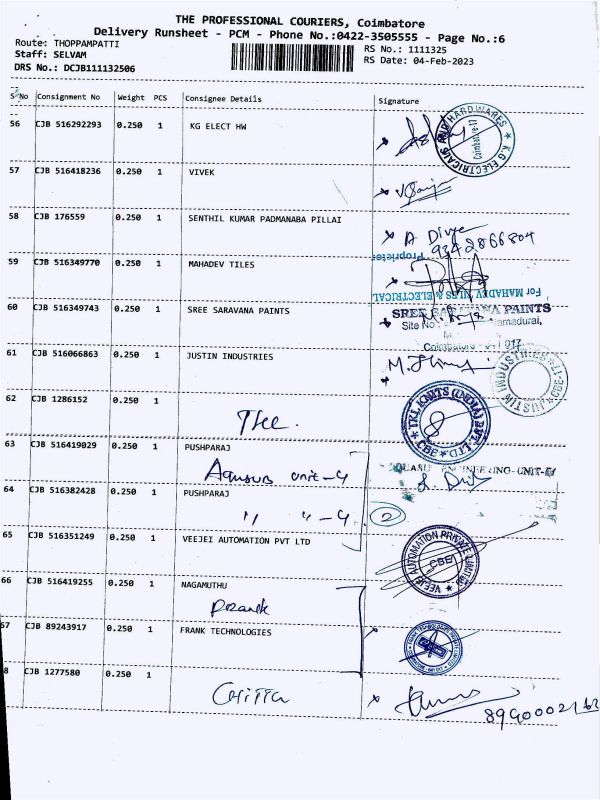 THE PROFESSIONAL COURIERS, Coimbatore
Delivery Runsheet - PCM - Phone No.:0422-3505555 - Page No.:6
Route: THOPPAMPATTI
RS No.: 1111325
Staff: SELVAM
RS Date: 04-Feb-2023
DRS No.: DCJB111132506
S No Consignment No Weight PCS Consignee Details Signature
56 CJB 516292293 0.250 1 KG ELECT HW
K.G ELECTRICALS AND HARDWARES Coimbatore-17
57 CJB 516418236 0.250 1 VIVEK
58 CJB 176559 0.250 1 SENTHIL KUMAR PADMANABA PILLAI
A Divye
9342866804
59 CJB 516349770 0.250 1 MAHADEV TILES
Proprietor
For MAHADEV TILES & ELECTRICAL
60 CJB 516349743 0.250 1 SREE SARAVANA PAINTS
SREE SARAVANA PAINTS
Site No
Coimbatore 017
61 CJB 516066863 0.250 1 JUSTIN INDUSTRIES
JUSTIN INDUSTRIES CBE-17
62 CJB 1286152 0.250 1
TKL KNITS (INDIA) PVT. LTD. CBE
63 CJB 516419029 0.250 1 PUSHPARAJ
unit-4
ENGINEERING-UNIT-IV
64 CJB 516382428 0.250 1 PUSHPARAJ
" " -4
2
65 CJB 516351249 0.250 1 VEEJEI AUTOMATION PVT LTD
VEEJEI AUTOMATION PRIVATE LIMITED CBE
66 CJB 516419255 0.250 1 NAGAMUTHU
67 CJB 89243917 0.250 1 FRANK TECHNOLOGIES
8 CJB 1277580 0.250 1